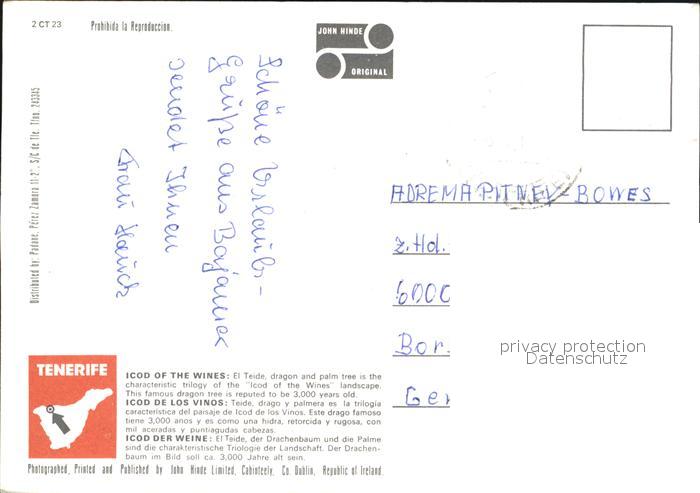 2 CT 23
Prohibida la Reproduccion.
JOHN HINDE
ORIGINAL
Schöne Urlaubs-
Grüße aus Bajamar
sendet Ihnen
Frau Hauck
Distributed by: Padane, Pérez Zamora 11-2°. S/C de Tfe. Tfno. 243345
ADREMA PITNEY-BOWES
z.Hd.
6000
Bor.
Ger
privacy protection
Datenschutz
TENERIFE
ICOD OF THE WINES: El Teide, dragon and palm tree is the
characteristic trilogy of the "Icod of the Wines" landscape.
This famous dragon tree is reputed to be 3,000 years old.
ICOD DE LOS VINOS: Teide, drago y palmera es la trilogía
característica del paisaje de Icod de los Vinos. Este drago famoso
tiene 3,000 años y es como una hidra, retorcida y rugosa, con
mil aceradas y puntiagudas cabezas.
ICOD DER WEINE: El Teide, der Drachenbaum und die Palme
sind die charakteristische Triologie der Landschaft. Der Drachen-
baum im Bild soll ca. 3,000 Jahre alt sein.
Photographed, Printed and Published by John Hinde Limited, Cabinteely, Co. Dublin, Republic of Ireland.